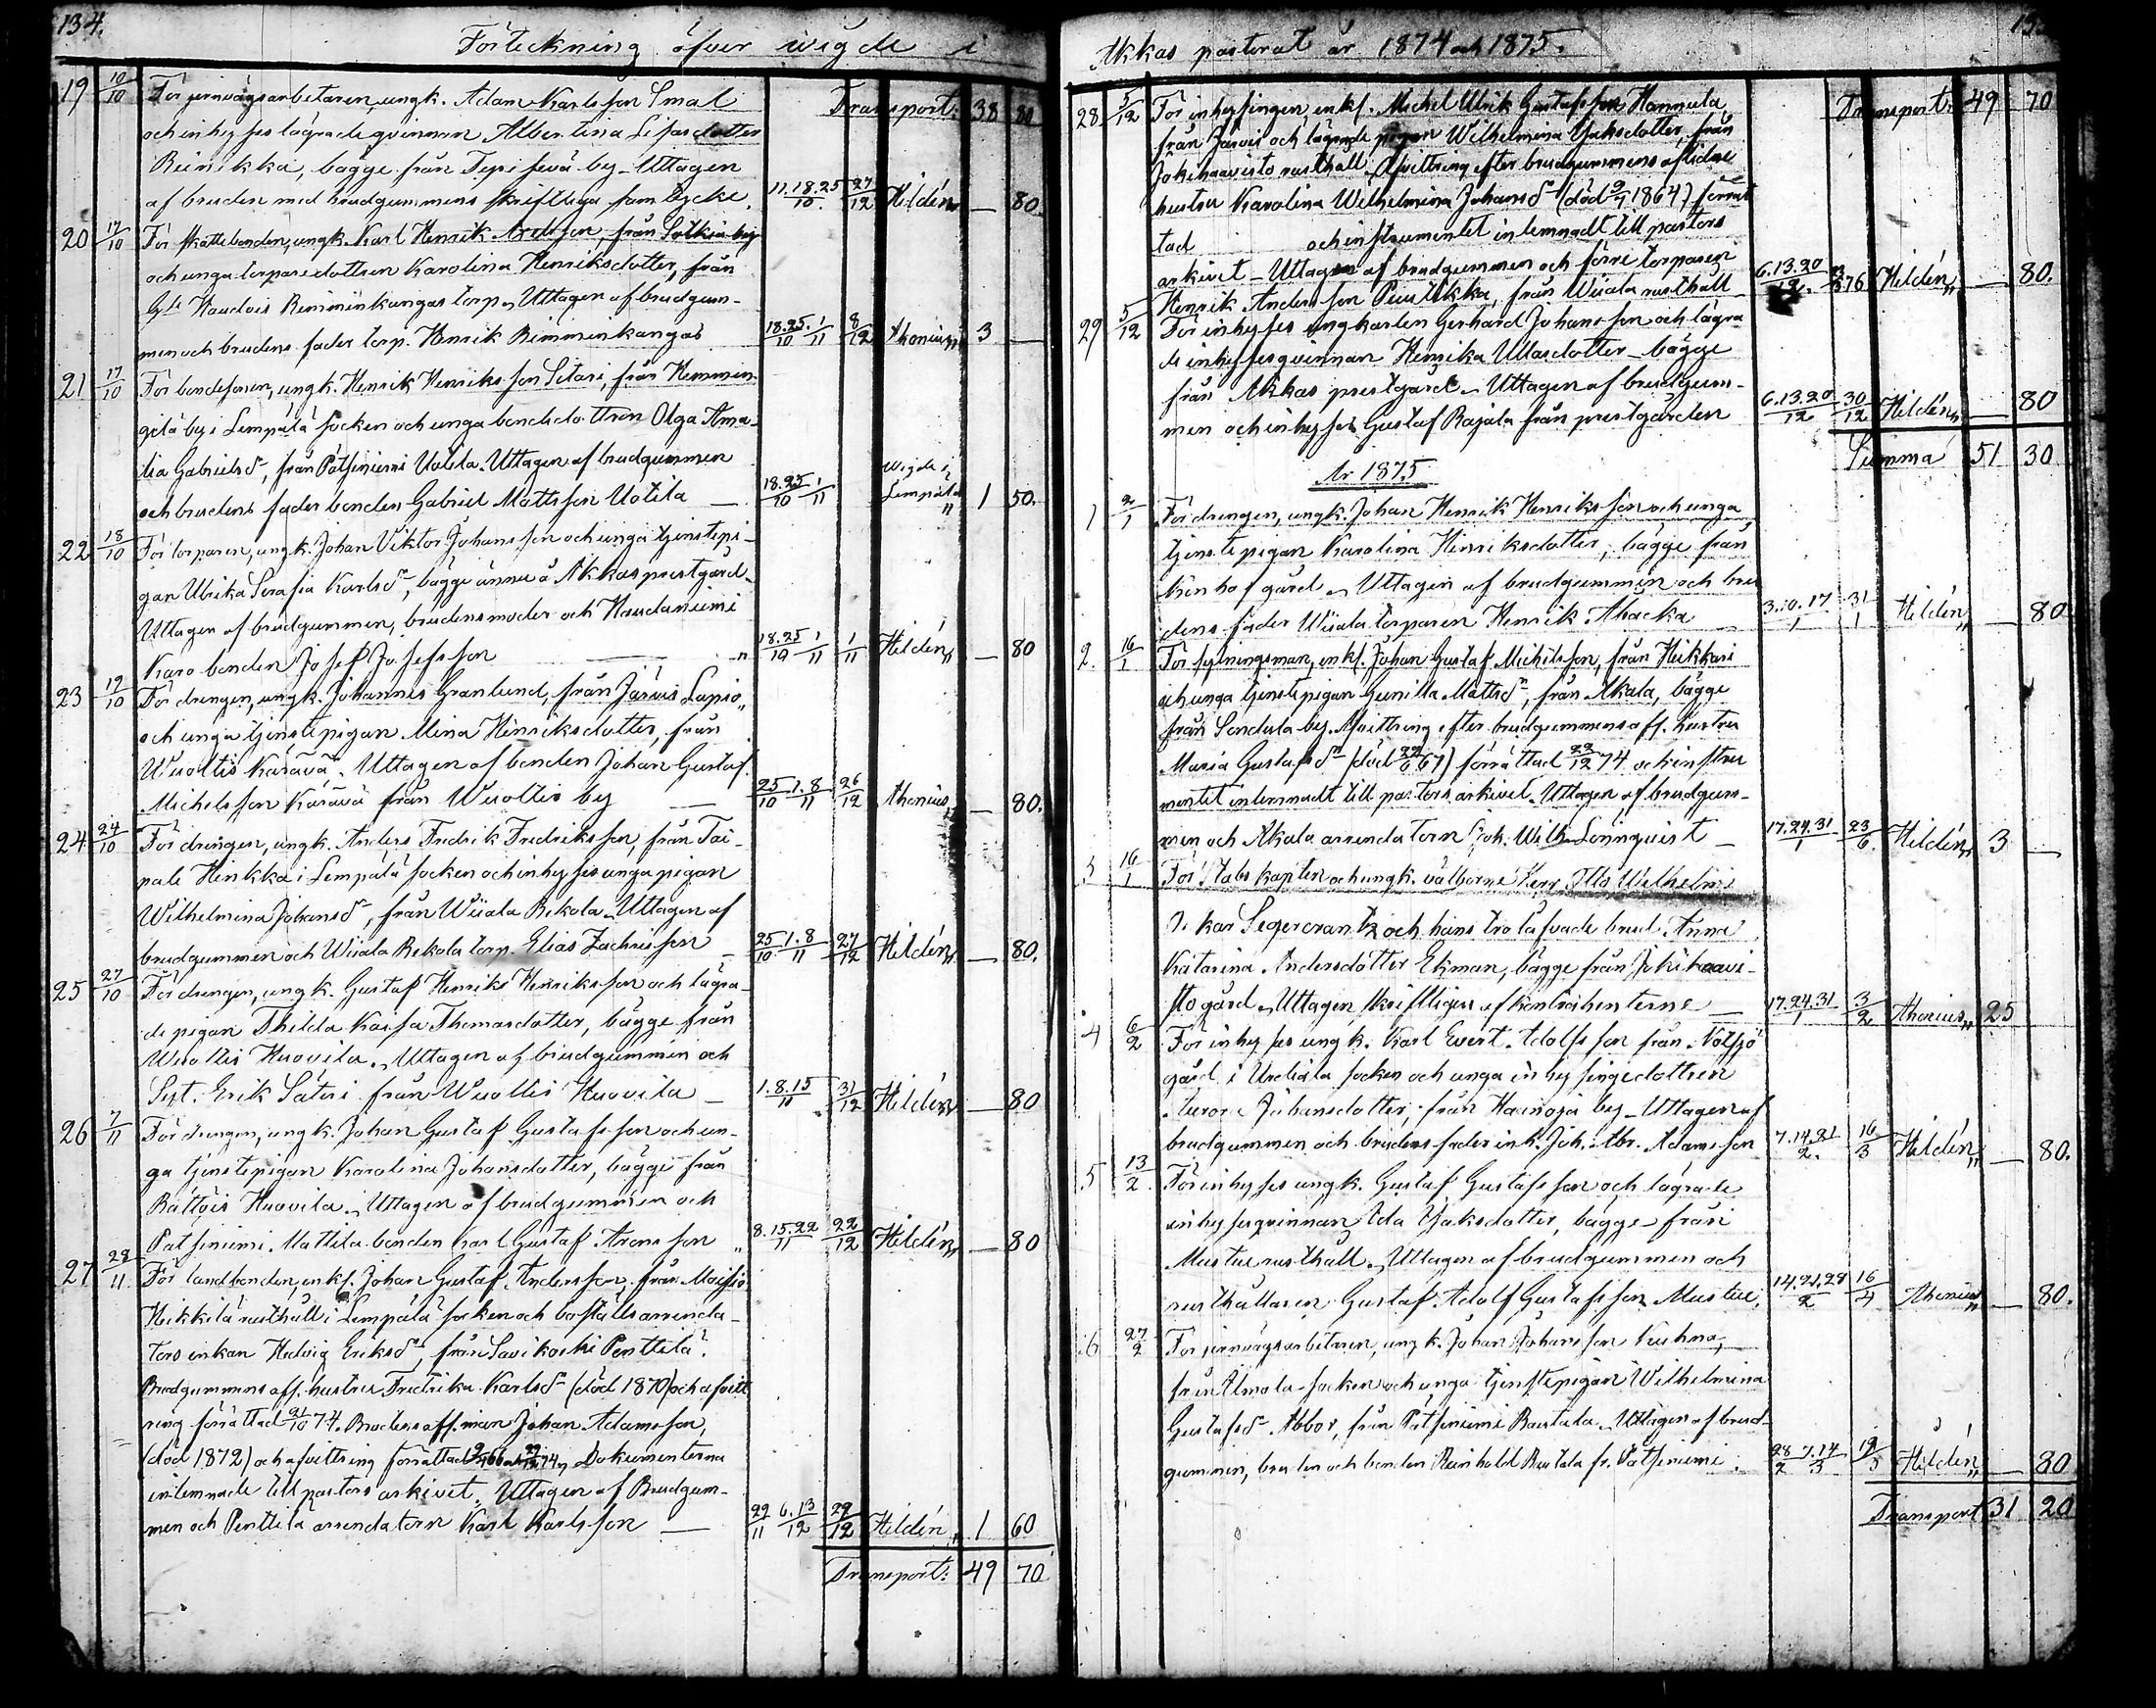 134.
Förteckning öfver wigde i
19 10/10 För jernvägsarbetaren, ungk. Adam Karlsson Smal Transport: 38 80
och inhyses lägrade qvinnan Albertina Lisasdotter
Reinikka, bägge från Tepisevä by. Uttagen
af bruden med brudgummens skriftliga samtycke. 11.18.25/10. 27/12 Hildén „ — 80.
20 17/10 För skattebonden, ungk. Karl Henrik Andersson, från Sotkia by
och unga torparedottren Karolina Henriksdotter, från
Gli Haudois Rimminkangas torp. Uttagen af brudgum-
men och brudens fader torp. Henrik Rimminkangas 18.25/10 1/11 8/12 Ahonius „ 3 —
21 17/10 För bondesonen, ungk. Henrik Henriksson Sitari, från Hemmin-
gilä by i Lempälä socken och unga bondedottren Olga Ama-
lia Gabrielsdr, från Patsiniemi Uotila. Uttagen af brudgummen
och brudens fader bonden Gabriel Mattsson Uotila — 18.25/10 1/11 Wigde i Lempälä „ 1 50.
22 18/10 För torparen, ungk. Johan Viktor Johansson och unga tjenstepi-
gan Ulrika Serafia Karlsdr, bägge ännu å Akkas prestgård.
Uttagen af brudgummen, brudens moder och Haudaniemi
Karo bonden Josef Josefsson — „ 18.25/10 1/11 1/11 Hildén „ — 80
23 19/10 För drengen, ungk. Johannes Granlund, från Järvis Lapio „
och unga tjenstepigan Mina Henriksdotter, från
Wuoltis Kärävä. Uttagen af bonden Johan Gustaf
Michelsson Kärävä från Wuoltis by — 25/10 1.8/11 26/12 Ahonius „ — 80.
24 24/10 För drengen, ungk. Anders Fredrik Fredriksson, från Tai-
pale Heikka i Lempälä socken och inhyses unga pigan
Wilhelmina Johansdr, från Wiiala Rekola. Uttagen af
brudgummen och Wiiala Rekola torp. Elias Zachrisson — 25/10 1.8/11 27/12 Hildén „ — 80.
25 27/10 För drengen, ungk. Gustaf Henriks Henriksson och lägra-
de pigan Thilda Kaisa Thomasdotter, bägge från
Wuoltis Huovila. Uttagen af brudgummen och
Syt. Erik Säteri från Wuoltis Huovila — 1.8.15/11 31/12 Hildén „ — 80
26 7/11 För drengen, ungk. Johan Gustaf Gustafsson och un-
ga tjenstepigan Karolina Johansdotter, bägge från
Rättöis Huovila. Uttagen af brudgummen och
Patsiniemi Mattila bonden Karl Gustaf Aronsson „ 8.15.22/11 22/12 Hildén „ — 80
27 28/11 För landbonden, enkl. Johan Gustaf Andersson, från Moisio
Heikkilä rusthåll i Lempälä socken och boställsarrenda-
tors enkan Hedvig Eriksdr, från Savikoski Penttilä.
Brudgummens afl. hustru Fredrika Karlsdr (död 1870) och afvitt-
ring förrättad 21/10 74. Brudens afl. man Johan Adamsson,
(död 1872) och afvittring förrättad 74. Dokumenterna
inlemnade till pastors arkivet. Uttagen af Brudgum-
men och Penttilä arrendatorn Karl Karlsson — 22/11 6.13/12 29/12 Hildén „ 1 60
Transport: 49 70
Akkas pastorat år 1874 och 1875.
28 5/12 För inhysingen, enkl. Michel Ulrik Gustafsson Hannula, Transport: 49 70
från Järvis och lägrade pigan Wilhelmina Isaksdotter, från
Jokihaavisto rusthåll. Afvittring efter brudgummens aflidne
hustru Karolina Wilhelmina Johansdr (död 1864) förrät-
tad och instrumentet inlemnadt till pastors
arkivet. Uttagen af brudgummen och förre torparen
Henrik Andersson Puustikka, från Wiiala rusthåll 6.13.20/12. 76 Hildén „ — 80.
29 5/12 För inhyses ungkarlen Gerhard Johansson och lägra-
de inhyses qvinnan Henrika Ullasdotter — bägge
från Akkas prestgård. Uttagen af brudgum-
men och inhyses Gustaf Rajala från prestgården 6.13.20/12 30/12 Hildén „ — 80
Summa 51 30
År 1875.
1 2/1 För drengen, ungk. Johan Henrik Henriksson och unga
tjenstepigan Karolina Henriksdotter, bägge från
hof gård. Uttagen af brudgummen och bru-
dens fader Wiiala torparen Henrik Ahacka — 3.10.17/1 31/1 Hildén „ — 80
2. 16/1 För sytningsman, enkl. Johan Gustaf Michelsson, från Heikkari
och unga tjenstepigan Gunilla Mattsdr, från Akala, bägge
från Sondula by. Afvittring efter brudgummens afl. hustru
Maria Gustafsdr (död 22/6 67) förrättad 22/12 74 och instru-
mentet inlemnadt till pastors arkivet. Uttagen af brudgum-
men och Akala arrendatorn Joh. Wilh. Lönnquist — 17.24.31/1 23/6 Hildén „ 3 —
3 16/1 För Stabskapten och ungk. välborne Herr Otto Wilhelm
Oskar Segercrantz och hans trolåfvade brud Anna
Katarina Andersdotter Ekman, bägge från Jokihaavi-
sto gård. Uttagen skriftligen af kontrahenterne — 17.24.31/1 3/2 Ahonius „ 25
4 6/2 För inhyses ungk. Karl Evert Adolfsson från Notsjö
gård i Urdiala socken och unga inhysingedottren
Aurora Johansdotter, från Haunoja by. Uttagen af
brudgummen och brudens fader inh. Joh. Abr. Adamsson 7.14.21/2. 16/3 Hildén „ — 80.
5 13/2 För inhyses ungk. Gustaf Gustafsson och lägrade
inhyses qvinnan Ida Isaksdotter, bägge från
Mustue rusthåll. Uttagen af brudgummen och
rusthållaren Gustaf Adolf Gustafsson Mustue. 14.21.28/2 16/4 Ahonius „ — 80.
6 27/2 För jernvägsarbetaren, ungk. Johan Johansson Kuhna,
från Ilmola socken och unga tjenstepigan Wilhelmina
Gustafsdr Abbor, från Patsiniemi Rautala. Uttagen af brud-
gummen, bruden och bonden Reinhold Rautala fr. Patsiniemi. 28/2 7.14/3 19/3 Hildén „ — 80
Transport 31 20